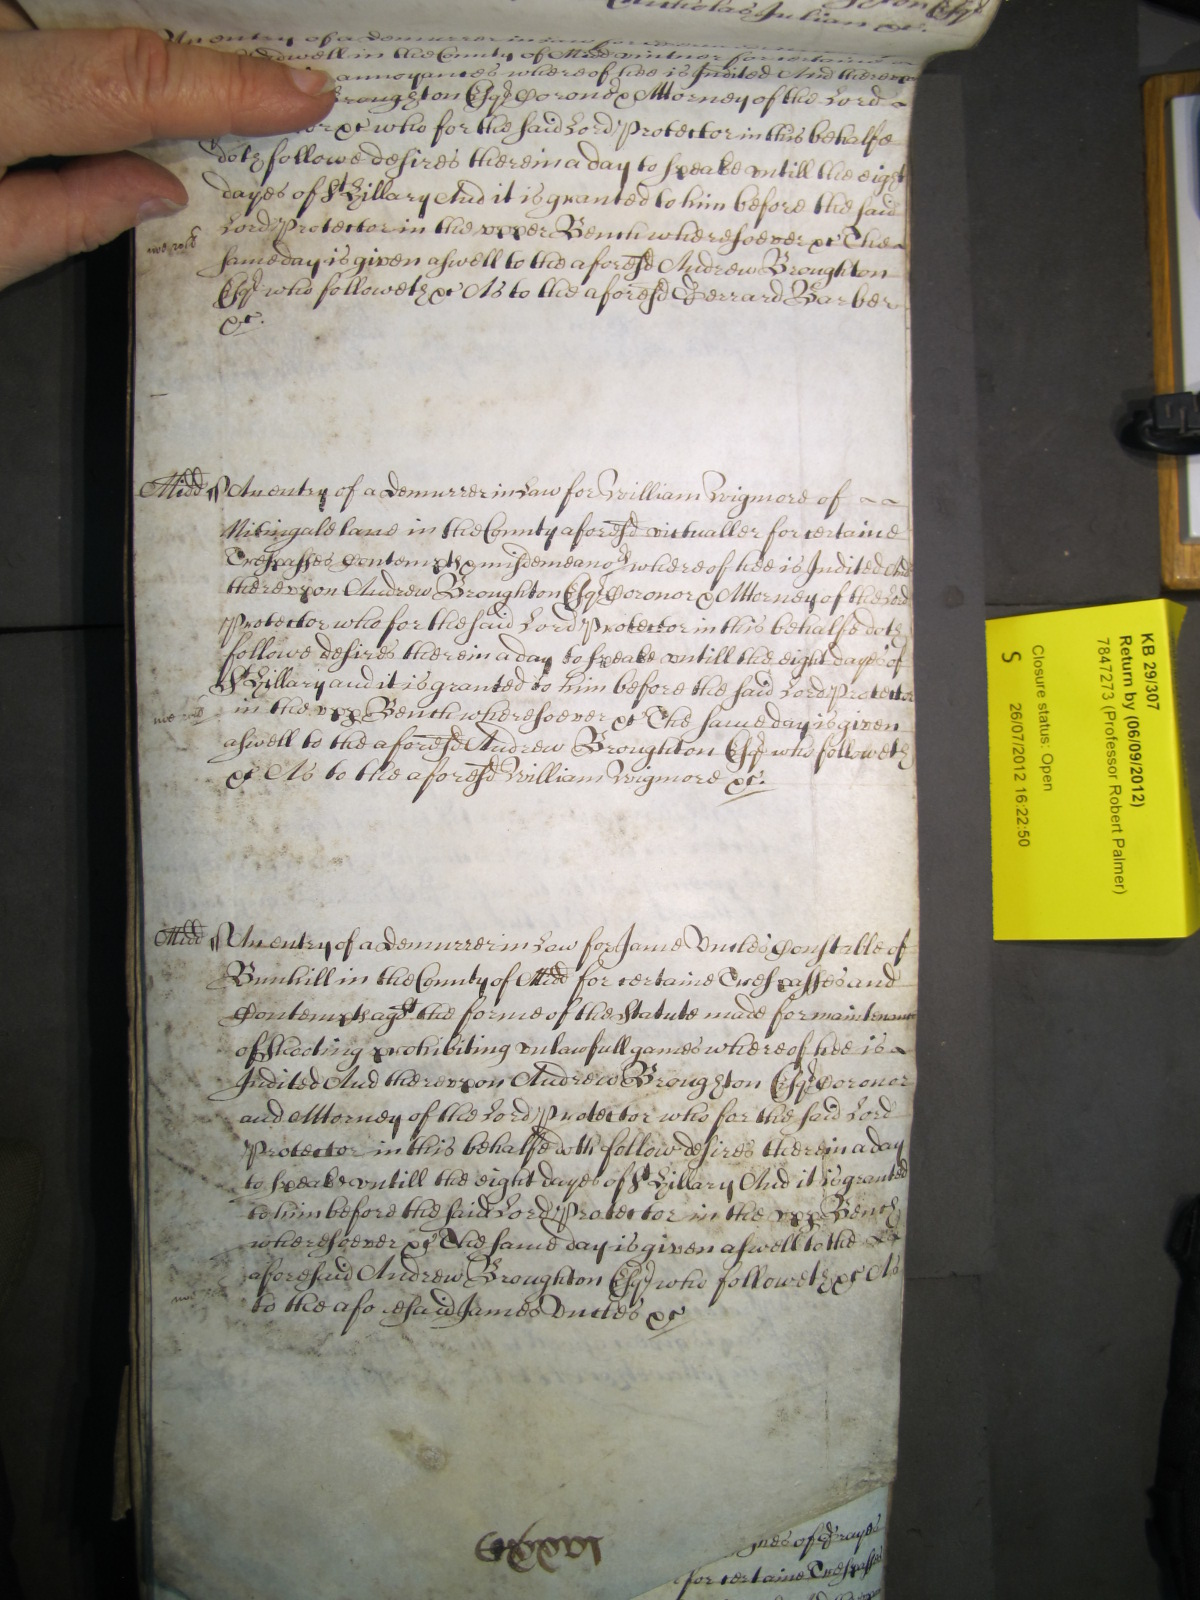 Nicholas Julian &c.
An entry of a demurrer in law for
in the County of Midd vintner for certaine
annoyances whereof hee is Indited And thereupon
Broughton Esqr Coronr & Attorney of the Lord
&c who for the said Lord Protector in this behalfe
doth followe desires therein a day to speake untill the eight
dayes of St Hillary And it is granted to him before the said
Lord Protector in the upper Bench wheresoever &c The
same day is given aswell to the aforesd Andrew Broughton
Esqr who followeth &c As to the aforesd Gerrard Barber
&c.
Midd ss An entry of a demurrer in Law for William Wigmore of
Nitingale lane in the County aforesd victualler for certaine
Trespasses Contempts & misdemeanors whereof hee is Indited And
thereupon Andrew Broughton Esqr Coronor & Attorney of the Lord
Protector who for the said Lord Protector in this behalfe doth
followe desires therein a day to speake untill the eight dayes of
St Hillary and it is granted to him before the said Lord Protector
in the upp Bench wheresoever &c The same day is given
aswell to the aforesd Andrew Broughton Esqr who followeth
&c As to the aforesd William Wigmore &c.
Midd ss An entry of a demurrer in Law for Jame Uncles Constable of
Bunhill in the County of Midd for certaine Trespasses and
Contempts agst the forme of the Statute made for maintenance
of shooting prohibiting unlawfull games whereof hee is
Indited And thereupon Andrew Broughton Esqr Coronor
and Attorney of the Lord Protector who for the said Lord
Protector in this behalfe doth follow desires therein a day
to speake untill the eight dayes of St Hillary And it is granted
to him before the said Lord Protector in the upp Bench
wheresoever &c The same day is given aswell to the
aforesaid Andrew Broughton Esqr who followeth &c As
to the aforesaid James Uncles &c
of Grayes
for certaine Trespasses
KB 29/307
Return by (06/09/2012)
7847273 (Professor Robert Palmer)
Closure status: Open
S 26/07/2012 16:22:50